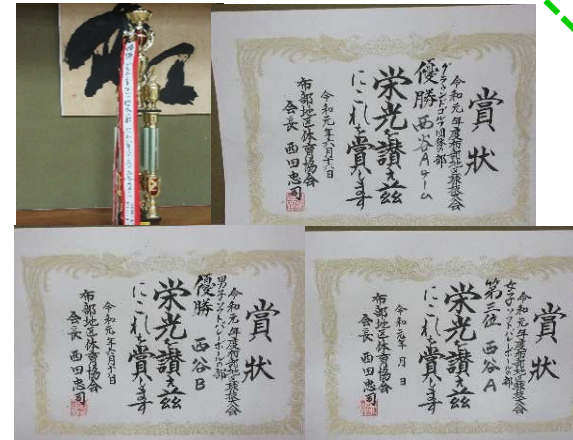 賞状
令和元年度布部地区球技大会
グラウンドゴルフ団体の部
優勝 西谷Aチーム
栄光を讃え茲
にこれを賞します
令和元年六月十六日
布部地区体育協会
会長 西田忠司
賞状
令和元年度布部地区球技大会
男子ソフトバレーボールの部
優勝 西谷B
栄光を讃え茲
にこれを賞します
令和元年六月十六日
布部地区体育協会
会長 西田忠司
賞状
令和元年度布部地区球技大会
女子ソフトバレーボールの部
第三位 西谷A
栄光を讃え茲
にこれを賞します
令和元年 月 日
布部地区体育協会
会長 西田忠司